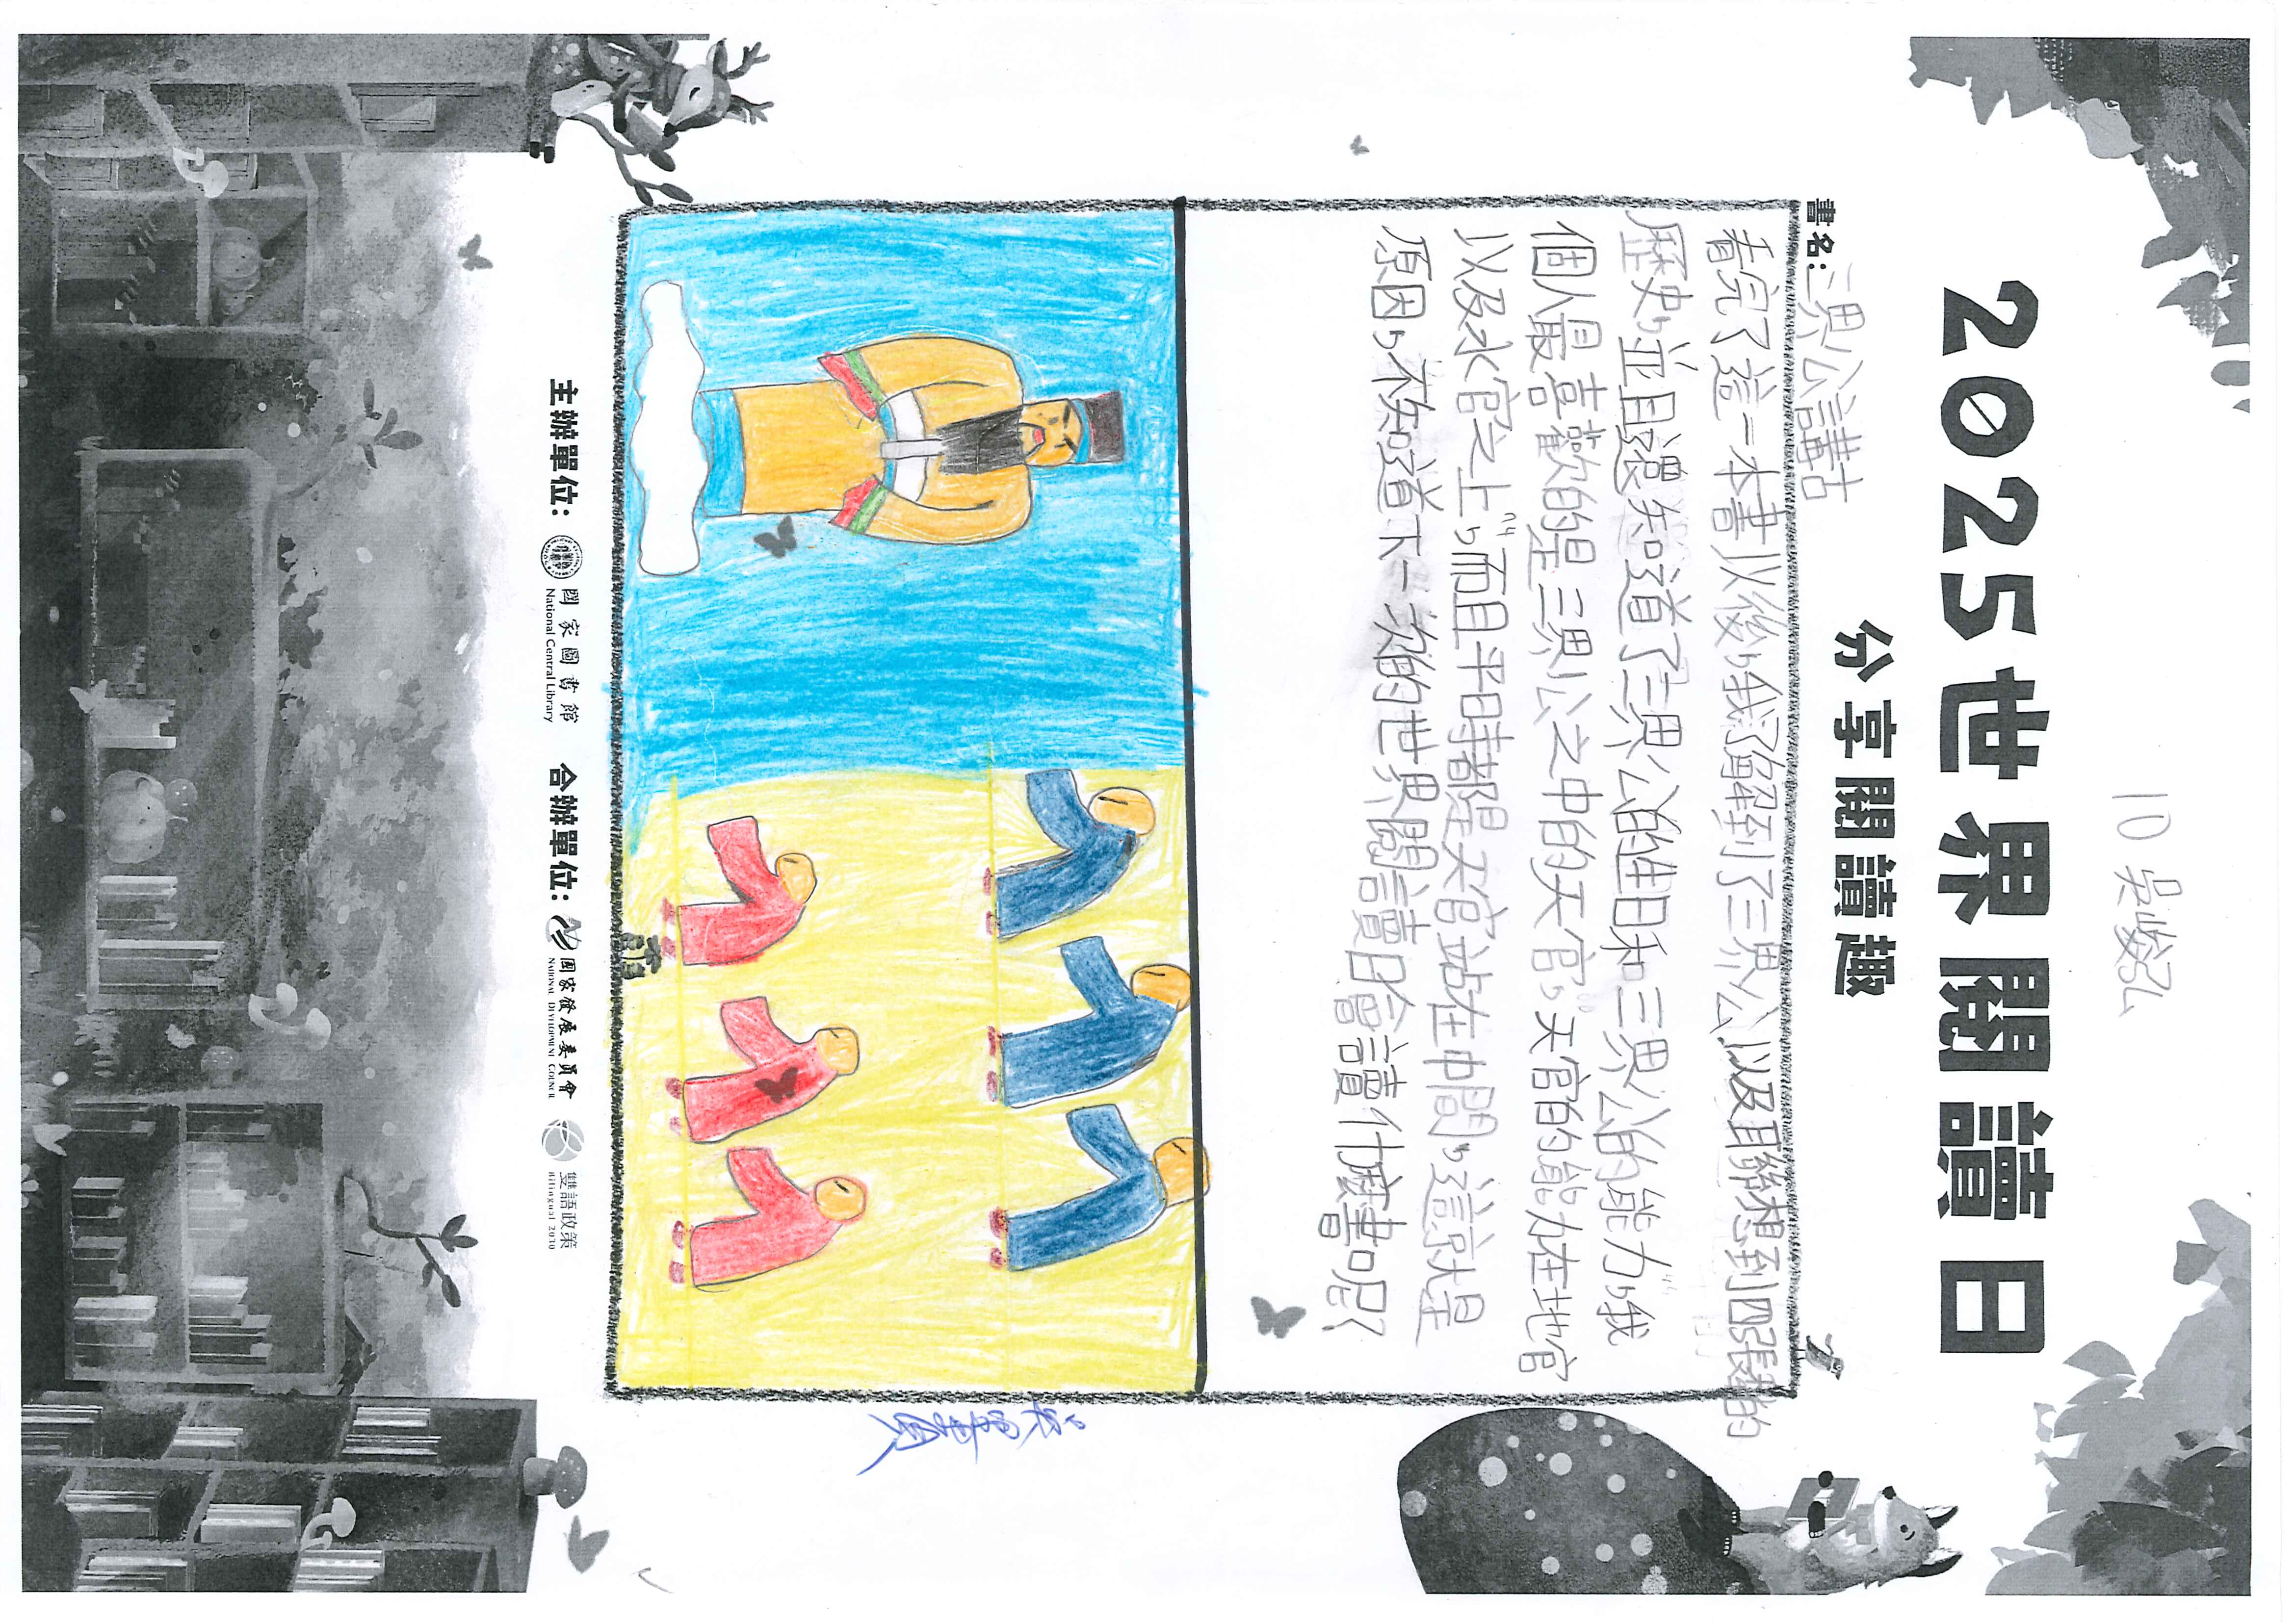 10 吳
2025世界閱讀日
分享閱讀趣
書名:三界公講古
看完了這一本書以後,我了解到了三界公以及聯想到四張犂的
歷史,並且還知道了三界公的生日和三界公的能力,我
個人最喜歡的是三界公之中的天官,天官的能力在地官
以及水官之上,而且平時都是天官站在中間,這就是
原因,不知道下一次的世界閱讀日會讀什麼書呢?
主辦單位: 國家圖書館 National Central Library 合辦單位: 國家發展委員會 NATIONAL DEVELOPMENT COUNCIL 雙語政策 Bilingual 2030